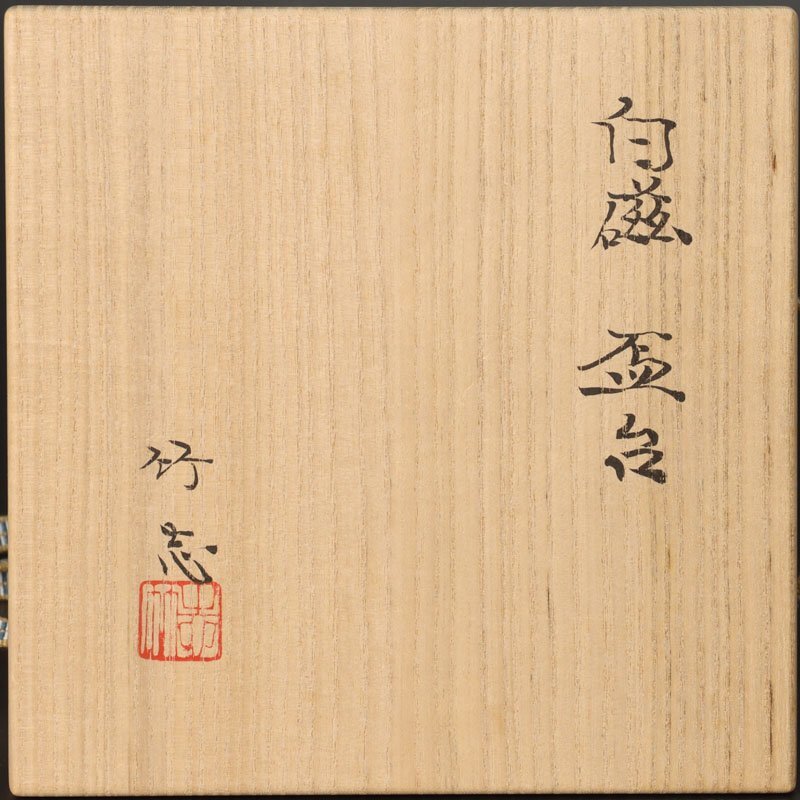 白磁 盃台
竹志